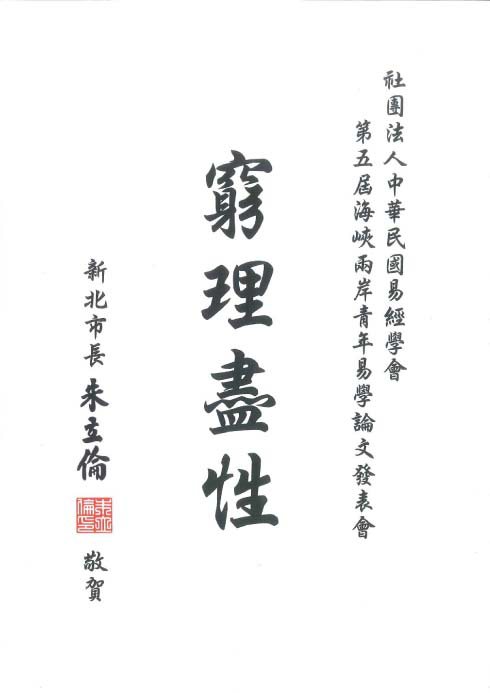 社團法人中華民國易經學會
第五屆海峽兩岸青年易學論文發表會
窮理盡性
新北市長 朱立倫 敬賀
朱立倫印